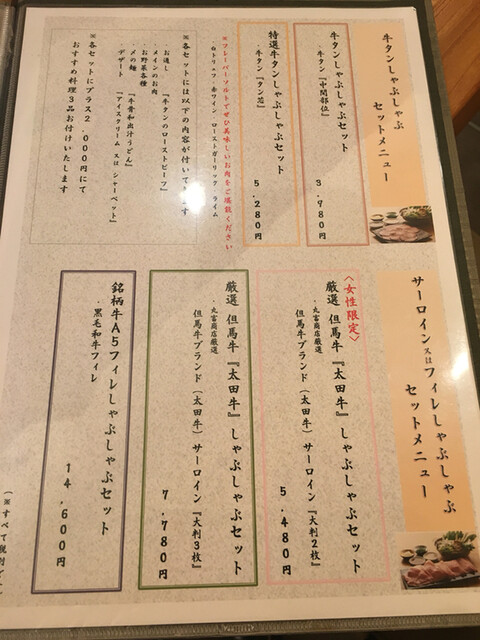 牛タンしゃぶしゃぶ
セットメニュー
牛タンしゃぶしゃぶセット
・牛タン『中間部位』
3,780円
特選牛タンしゃぶしゃぶセット
・牛タン『タン芯』
5,280円
※フレーバーソルトでぜひ美味しいお肉をご堪能ください
・白トリュフ・赤ワイン・ローストガーリック・ライム
※各セットには以下の内容が付いてきます
・お通し『牛タンのローストビーフ』
・メインのお肉
・お野菜各種
・〆の麺『牛骨和出汁うどん』
・デザート『アイスクリーム又はシャーベット』
※各セットにプラス2,000円にて
おすすめ料理3品お付けいたします
サーロイン又はフィレしゃぶしゃぶ
セットメニュー
<女性限定>
厳選 但馬牛『太田牛』しゃぶしゃぶセット
・丸富商店厳選
但馬牛ブランド(太田牛)サーロイン『大判2枚』
5,480円
厳選 但馬牛『太田牛』しゃぶしゃぶセット
・丸富商店厳選
但馬牛ブランド(太田牛)サーロイン『大判3枚』
7,780円
銘柄牛A5フィレしゃぶしゃぶセット
・黒毛和牛フィレ
14,600円
(※すべて税別